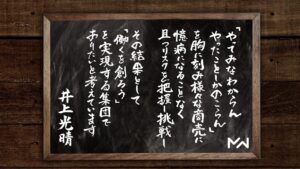 「やってみなわからん
やったことしかのこらん」
を胸に刻み様々な商売に
臆病になることなく
且つリスクを把握し挑戦し
その結果として
「働くを創ろう」
を実現する集団で
ありたいと考えています
井上光晴